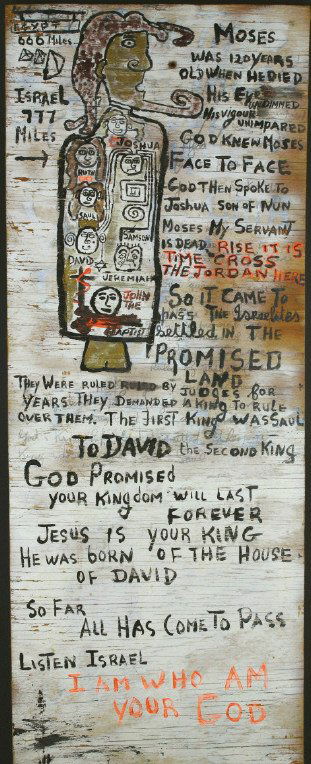 EGYPT
666 Miles
ISRAEL
777
MILES
JOSHUA
RUTH
SAUL
SAMSON
DAVID
JEREMIAH
JOHN
THE
BAPTIST
MOSES
WAS 120 YEARS
OLD WHEN HE DIED
HIS EYE
UNDIMMED
HIS VIGOUR
UNIMPARED
GOD KNEW MOSES
FACE TO FACE
GOD THEN SPOKE TO
JOSHUA SON OF NUN
MOSES MY SERVANT
IS DEAD. RISE IT IS
TIME CROSS
THE JORDAN HERE
SO IT CAME TO
PASS THE ISRAELITES
SETTLED IN THE
PROMISED
LAND
THEY WERE RULED RULED BY JUDGES FOR
YEARS THEY DEMANDED A KING TO RULE
OVER THEM. THE FIRST KING WAS SAUL
TO DAVID the SECOND KING
GOD PROMISED
YOUR KINGDOM WILL LAST
FOREVER
JESUS IS YOUR KING
HE WAS BORN OF THE HOUSE
OF DAVID
SO FAR
ALL HAS COME TO PASS
LISTEN ISRAEL
I AM WHO AM
YOUR GOD